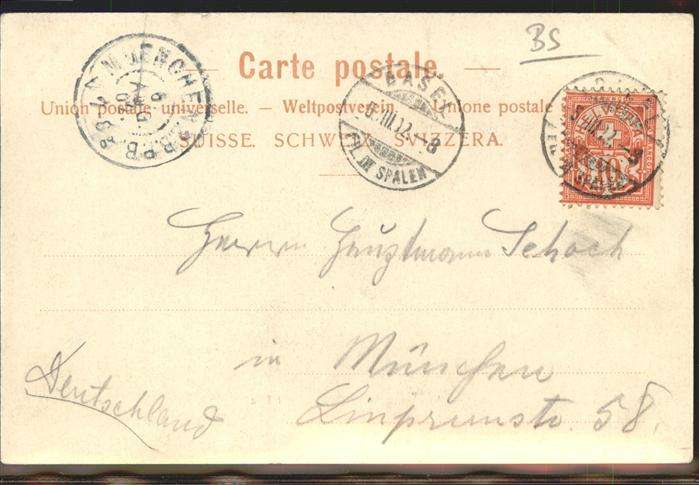 BS
Carte postale.
Union postale universelle. — Weltpostverein. — Unione postale
SUISSE. SCHW SVIZZERA.
MUENCHEN
BASEL
5.III.12.-8
FIL. IN SPALEN
10
Herrn Hauptmann Schoch
in München
Deutschland
58.